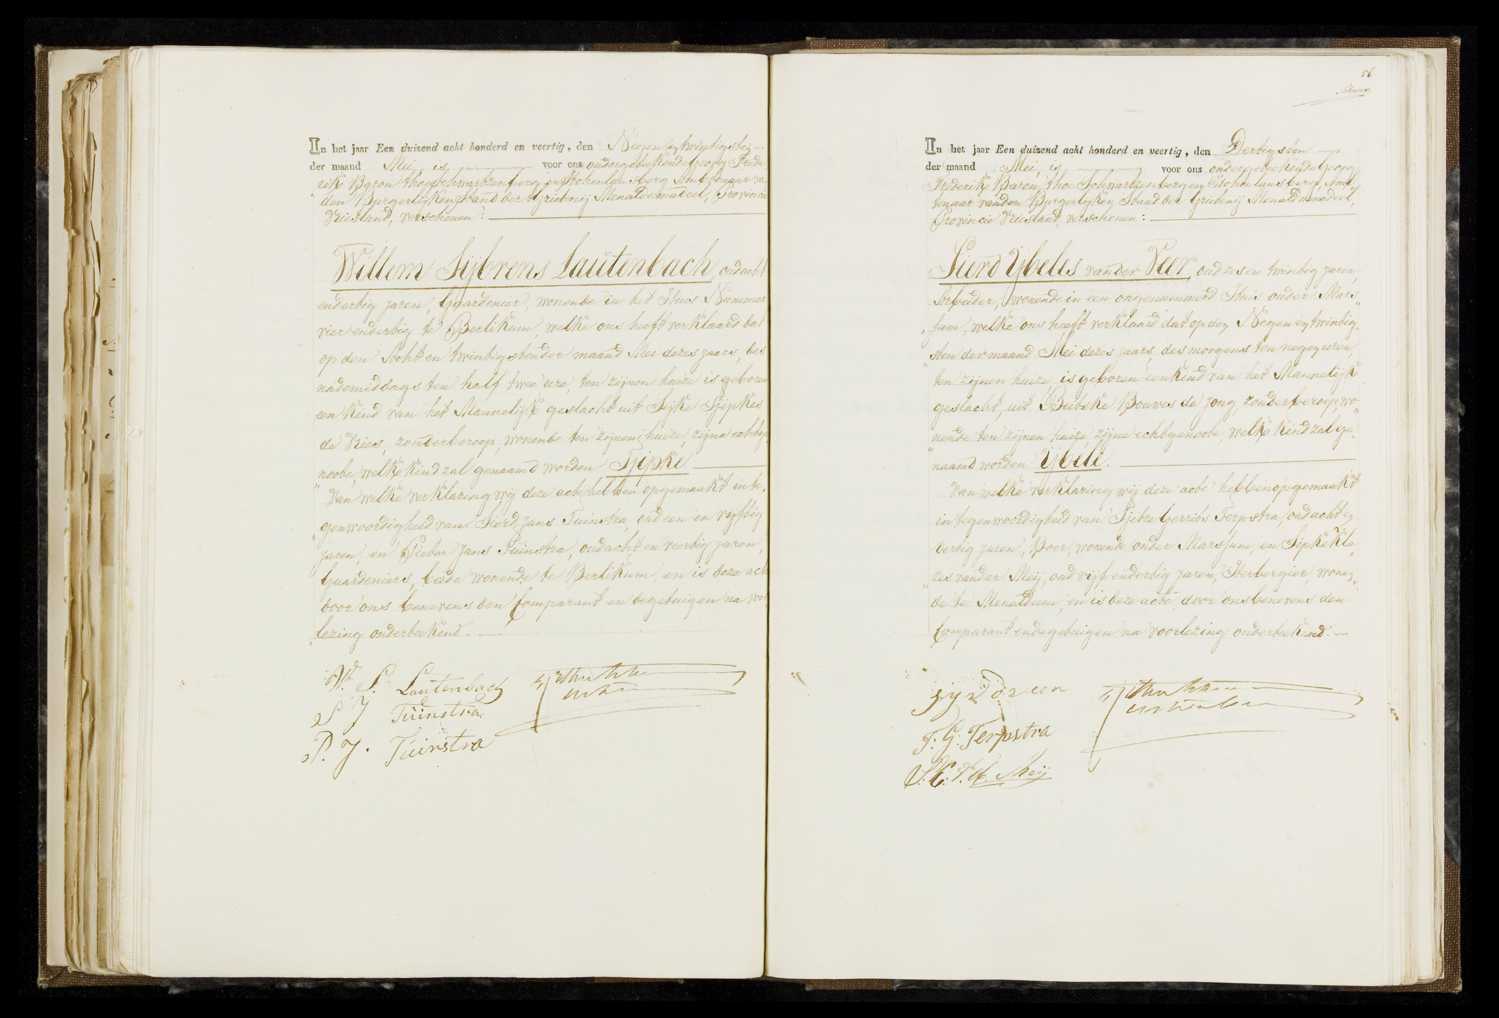 In het jaar Een duizend acht honderd en veertig, den Negen en twintigsten
der maand Mei, is voor ons ondergeteekende Georg Frede
rik Baron thoe Schwartzenberg en Hohenlansberg Ambtenaar va
den Burgerlyken Stand der Grietenij Menaldumadeel, Provincie
Vriesland, verschenen:
Willem Sijbrens Lautenbach, oud acht
en dertig jaren, Gaardenier, wonende in het Huis Nummer
vier en dertig te Berlikum welke ons heeft verklaard dat
op den Acht en twintigsten der maand Mei dezes jaars, des
nademiddags ten half twee ure, ten zijnen huize is geboren
een kind van het Mannelijk geslacht uit Sijke Tjipkes
de Vries, zonder beroep, wonende ten zijnen huize, zijne echtge
noote, welk kind zal genaamd worden Tjipke
Van welke verklaring wij deze acte hebben opgemaakt in te
genwoordigheid van Sjord Jans Tuinstra, oud een en vyftig
jaren, en Pieter Jans Tuinstra, oud acht en veertig jaren,
Gaardeniers, beide wonende te Berlikum, en is deze act
door ons benevens den Comparant en de getuigen na voor
lezing onderteekend.
W. S. Lautenbach
S J Tuinstra
P. J. Tuinstra
56
In het jaar Een duizend acht honderd en veertig, den Dertigsten
der maand Mei, is voor ons ondergeteekende Georg
Frederik Baron thoe Schwartzenberg en Hohenlansberg, Amb
tenaar van den Burgerlyken Stand der Grietenij Menaldumadeel,
Provincie Vriesland, verschenen:
Sierd Ybeles van der Veer, oud zes en twintig jaren,
Arbeider, wonende in een ongenummerd Huis onder Mars
sum, welke ons heeft verklaard dat op den Negen en twintig
sten der maand Mei dezes jaars, des morgens ten negen uren,
ten zijnen huize, is geboren een kind van het Mannelijk
geslacht, uit Baukje Douwes de Jong zonder beroep, wo
nende ten zijnen huize, zijne echtgenoote, welk kind zal ge
naamd worden Ybele.
Van welke verklaring wij deze acte hebben opgemaakt
in tegenwoordigheid van Tjebbe Gerrits Terpstra, oud acht en
dertig jaren, Boer, wonende onder Marssum, en Sipke Kla
zes van der Meij, oud vijf en dertig jaren, Herbergier wonen
de te Menaldum, en is deze acte door ons benevens den
Comparant en de getuigen na voorlezing onderteekend.
T. G. Terpstra
S. K. v. d. Meij